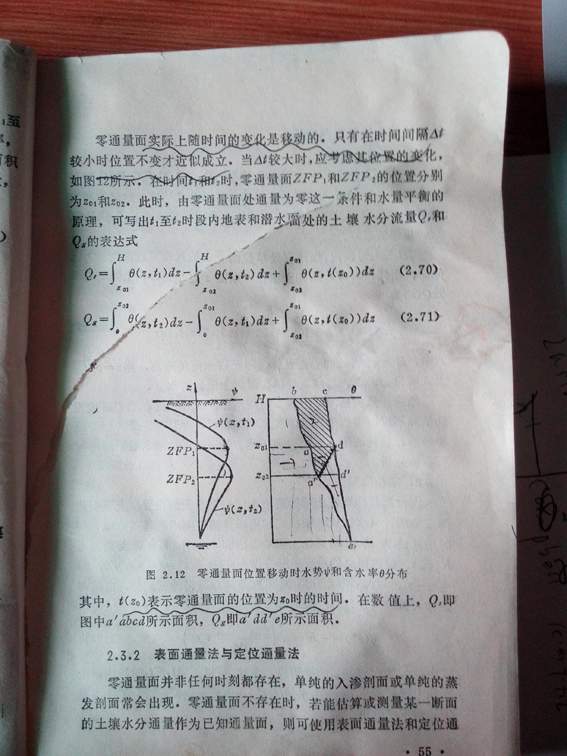 零通量面实际上随时间的变化是移动的。只有在时间间隔Δt
较小时位置不变才近似成立。当Δt较大时,应考虑其位置的变化,
如图12所示。在时间t₁和t₂时,零通量面ZFP₁和ZFP₂的位置分别
为z₀₁和z₀₂。此时,由零通量面处通量为零这一条件和水量平衡的
原理,可写出t₁至t₂时段内地表和潜水面处的土壤水分流量Q,和
Q的表达式
=∫θ(z,t₁)dz−∫θ(z,t₂)dz+∫θ(z,t(z₀))dz (2.70)
=∫θ(z,t₂)dz−∫θ(z,t₁)dz+∫θ(z,t(z₀))dz (2.71)
z ψ H b c θ
ψ(z,t₁)
ZFP₁ z₀₁ a d
ZFP₂ z₀₂ a′ d′
ψ(z,t₂)
图 2.12 零通量面位置移动时水势ψ和含水率θ分布
其中,t(z₀)表示零通量面的位置为z₀时的时间。在数值上,Q,即
图中a′abcd所示面积,Q即a′dd′e所示面积。
2.3.2 表面通量法与定位通量法
零通量面并非任何时刻都存在,单纯的入渗剖面或单纯的蒸
发剖面常会出现。零通量面不存在时,若能估算或测量某一断面
的土壤水分通量作为已知通量面,则可使用表面通量法和定位通
· 55 ·